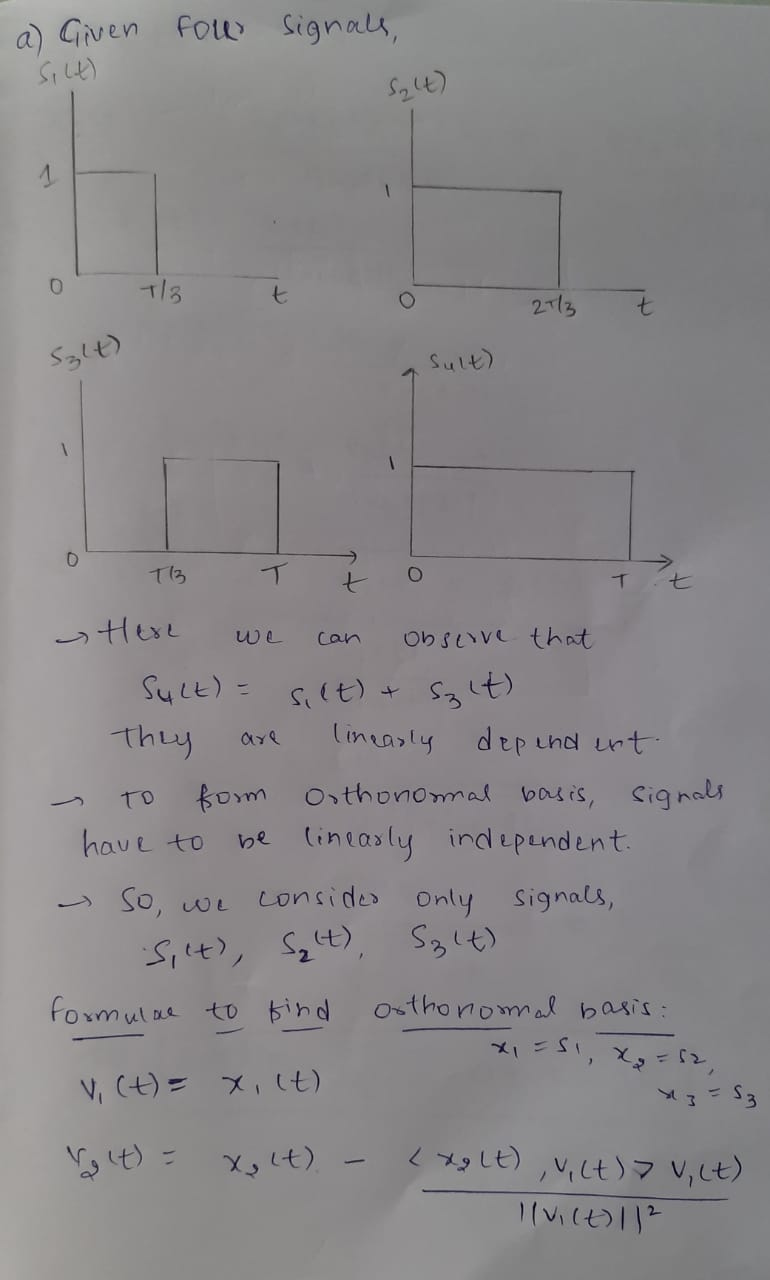 a) Given four signals,
S₁(t)
S₂(t)
1
1
0
T/3
t
0
2T/3
t
S₃(t)
S₄(t)
1
1
0
T/3
T
t
0
T
t
→ Here we can observe that
S₄(t) = S₁(t) + S₃(t)
They are linearly dependent.
→ To form Orthonormal basis, signals
have to be linearly independent.
→ So, we consider only signals,
S₁(t), S₂(t), S₃(t)
formulae to find orthonormal basis:
x₁ = S1, x₂ = S2,
x₃ = S3
V₁(t) = x₁(t)
V₂(t) = x₂(t) - <x₂(t), V₁(t)> V₁(t)
||V₁(t)||²